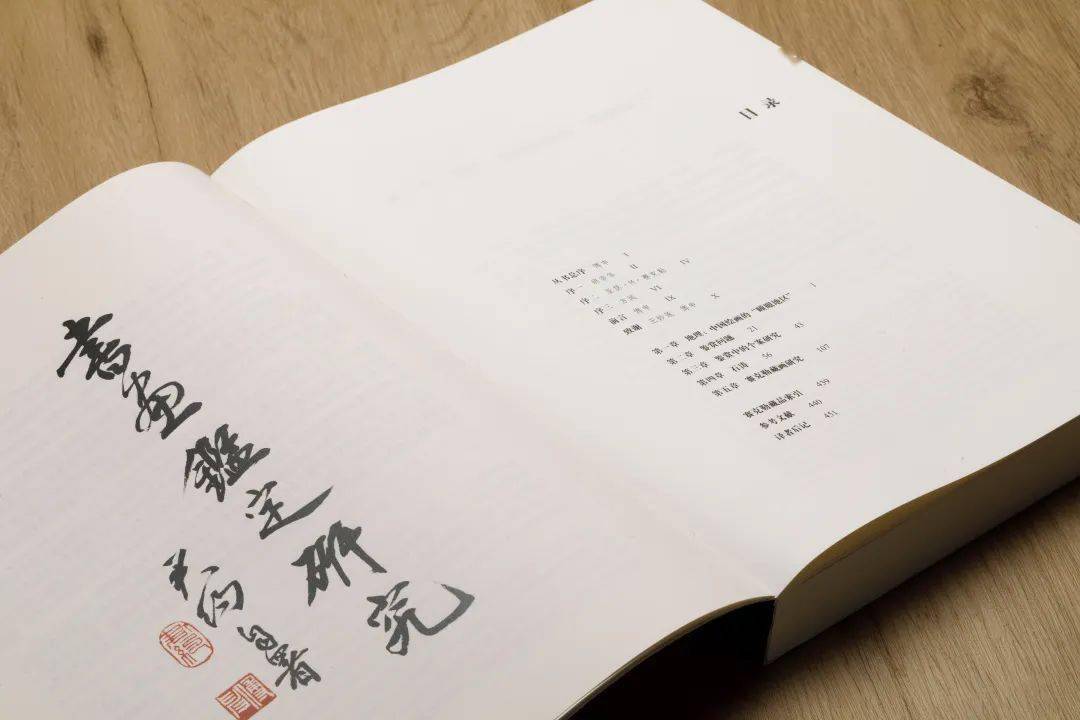 書畫鑑定研究
目录
丛书总序 傅申 I
序一 II
序二 亚瑟·M·赛克勒 IV
序三 方闻 VI
前言 傅申 IX
致谢 王妙莲 傅申 X
第一章 地理：中国绘画的“面貌地区” 1
第二章 鉴赏问题 21
第三章 鉴赏中的个案研究 43
第四章 石涛 56
第五章 赛克勒藏画研究 107
赛克勒藏品索引 439
参考文献 440
译者后记 451